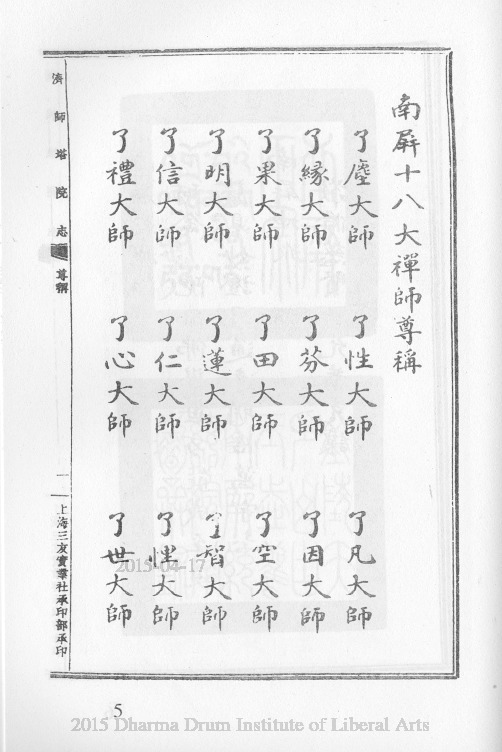 南屛十八大禪師尊稱
了塵大師　了性大師　了凡大師
了緣大師　了芬大師　了因大師
了果大師　了田大師　了空大師
了明大師　了蓮大師　了智大師
了信大師　了仁大師　了悝大師
了禮大師　了心大師　了世大師
濟師塔院志　尊稱　一　上海三友實業社承印部承印
2015-04-17
5
2015 Dharma Drum Institute of Liberal Arts